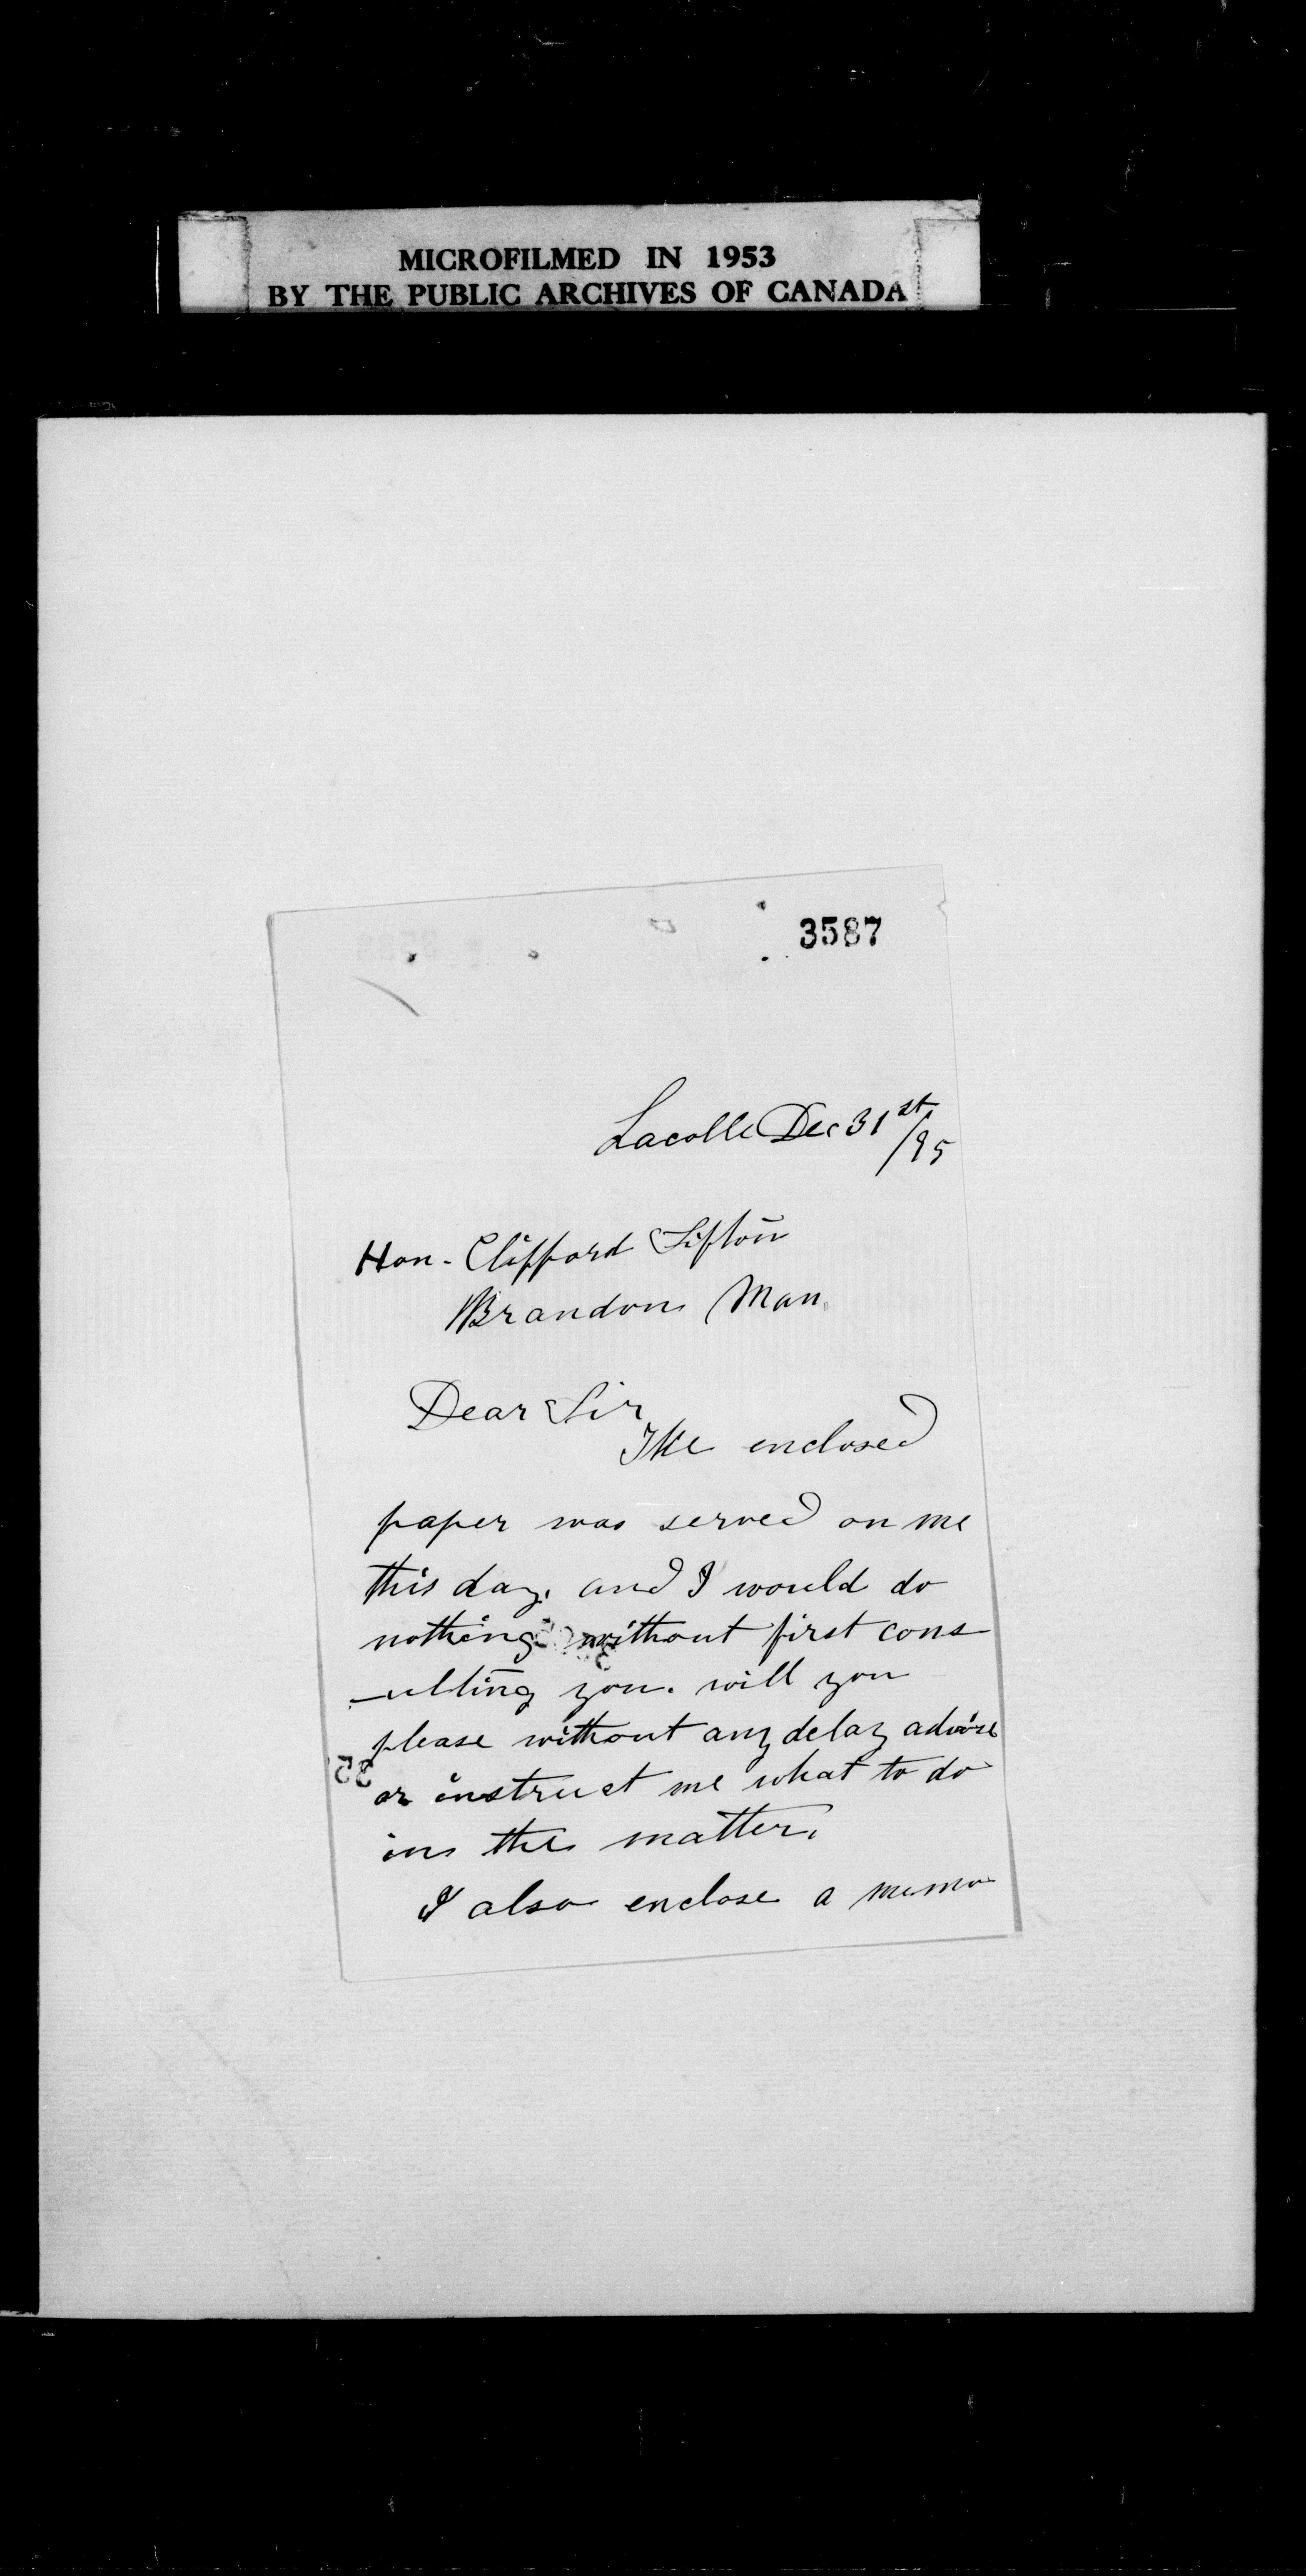 MICROFILMED IN 1953
BY THE PUBLIC ARCHIVES OF CANADA
3587
Lacolle Dec 31st/95
Hon. Clifford Sifton
Brandon Man.
Dear Sir
The enclosed
paper was served on me
this day. and I would do
nothing without first cons
-ulting you. will you
please without any delay advise
or instruct me what to do
in the matter.
I also enclose a memo